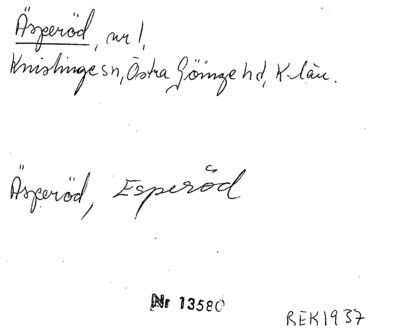 Äsperöd, nr 1,
Knislinge sn, Östra Göinge hd, K-län.
Äsperöd, Esperöd
Nr 13580
REK1937